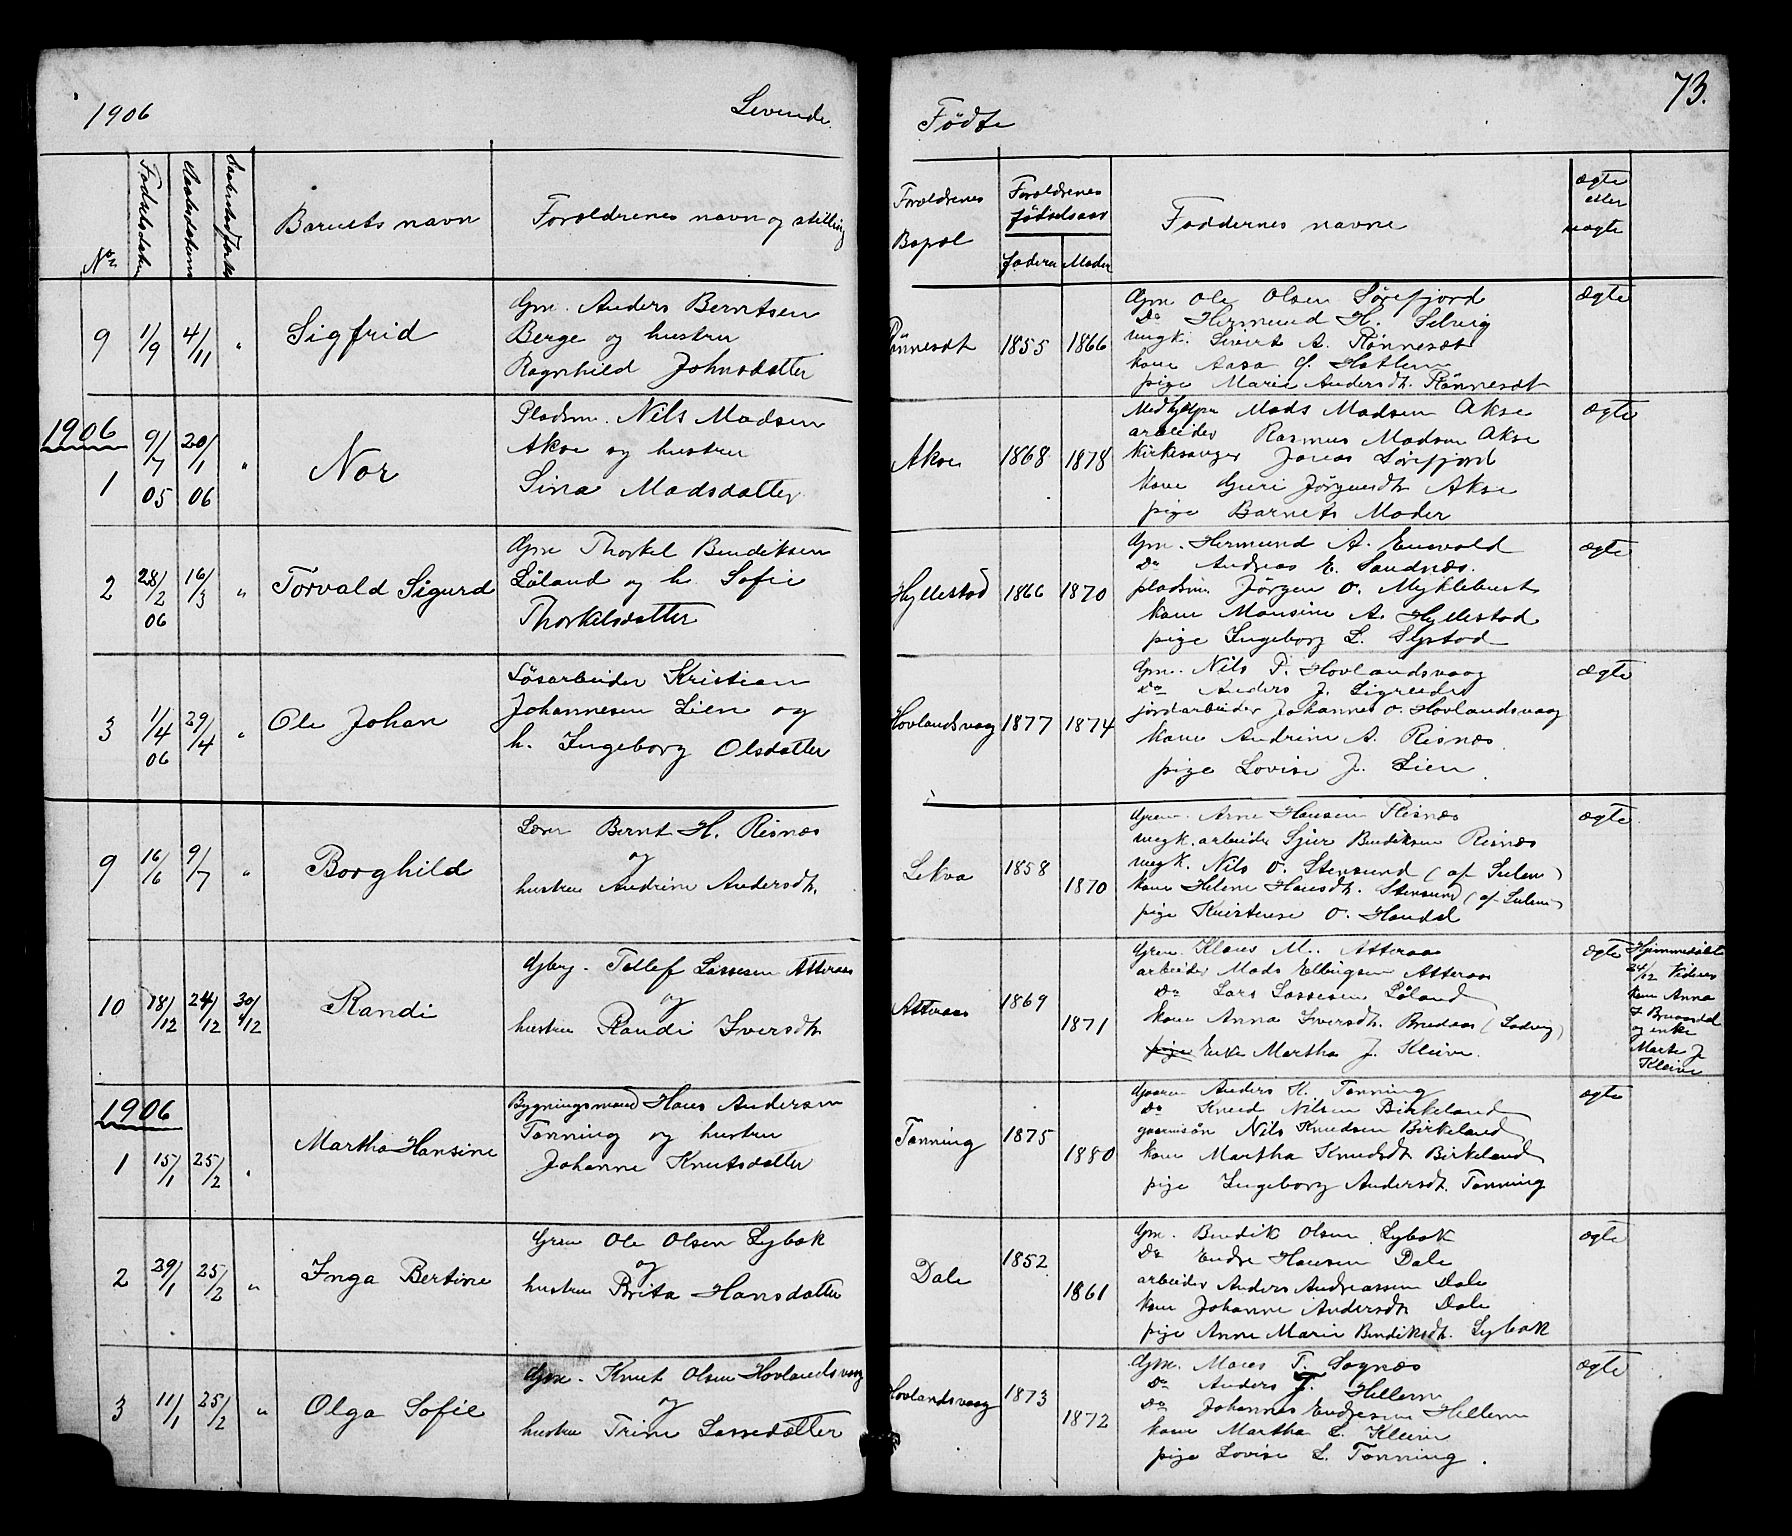 1906
Levende
Fødte
73.
No.
Fødselsdatum
Barnets navn
Forældrenes navn og stilling
Forældrenes
Bopæl
Forældrenes
fødselsaar
faderen Moder
Faddernes navne
ægte
eller
uægte
9 1/9 4/11 " Sigfrid
Gm. Anders Berntsen
Berge og hustru
Ragnhild Johnsdatter
Rønnesæt 1855 1866
Gm Ole Olsen Sørefjord
Do Hermund H. Selvig
ungk. Sivert A. Rønnesæt
kone Aasa G. Hatlem
pige Marie Andersdt. Rønnesæt
ægte
1906
1 9/7 05 20/1 06 " Nor
Pladsm. Nils Madsen
Akse og hustru
Sina Madsdatter
Akse 1868 1878
Medhjelper Mads Madsen Akse
arbeider Rasmus Madsen Akse
Kirkesanger Jonas Sørefjord
kone Guri Jørgensdt. Akse
pige Barnets Moder
ægte
2 28/2 06 16/3 " Torvald Sigurd
Gm Thorkel Bendiksen
Løland og h. Sofie
Thorkelsdatter
Hyllestad 1866 1870
Gm. Hermund A. Eusvold
Do Andreas E. Sandnæs.
pladsm. Jørgen O. Myklebust
kone Monsine A. Hyllestad
pige Ingeborg L. Systad
ægte
3 1/4 06 29/4 " Ole Johan
Løsarbeider Kristian
Johannesen Lien og
h. Ingeborg Olsdatter
Hovlandsvaag 1877 1874
Gm. Nils P. Hovlandsvaag
Do Anders J. Ligreeder
jordarbeider Johannes O. Hovlandsvaag
kone Andrine A. Risnæs.
pige Lovise J. Lien.
ægte
9 16/6 9/7 " Borghild
Lærer Bernt H. Risnæs
og
hustru Andrine Andersdt.
Lekva 1858 1870
Grm. Arne Hansen Risnæs
ungk. arbeider Sjur Bendiksen Risnæs
ungk. Nils O. Stensund (af Sulen)
kone Helene Hansdt. Stensund (af Sulen)
pige Kristense O. Handal
ægte
10 18/12 24/12 30/12 Randi
Gbrg. Tollef Lassesen Atteraas
og
hustru Randi Iversdt.
Atteraas 1869 1871
Grm. Klaus M. Atteraas
arbeider Mads Ellingsen Atteraas
Do Lars Lassesen Løland
kone Anna Iversdt. Bredaas (Ladvig)
pige Enke Martha J. Kleive.
ægte
Hjemmedøbt
24/12 Vidner
kone Anna
I
og enke
Marte J.
Kleive
1906
1 15/1 25/2 " Martha Hansine
Bygningsmand Hans Andersen
Tønning og hustru
Johanne Knutsdatter
Tønning 1875 1880
Gaardm Anders K. Tønning
Do Knud Nilsen Birkeland
gaardmsøn Nils Knudsen Birkeland
kone Martha Knudsdt Birkeland
pige Ingeborg Andersdt. Tønning
ægte
2 29/1 25/2 " Inga Bertine
Grm Ole Olsen Lybæk
og
hustru Brita Hansdatter
Dale 1852 1861
Gm. Bendik Olsen Lybæk
Do Endre Hansen Dale
arbeider Anders Andreassen Dale
kone Johanne Andersdt Dale
pige Anne Marie Bendiksdt. Lybæk
ægte
3 11/1 25/2 " Olga Sofie
Gm. Knut Olsen Hovlandsvaag
og
hustru Trine Lassedatter
Hovlandsvaag 1873 1872
Gm. Mons T. Sognæs
Do Anders T. Hellem
Do Johannes Endresen Hellem
kone Martha L. Kleive
pige Lovise L. Tønning.
ægte